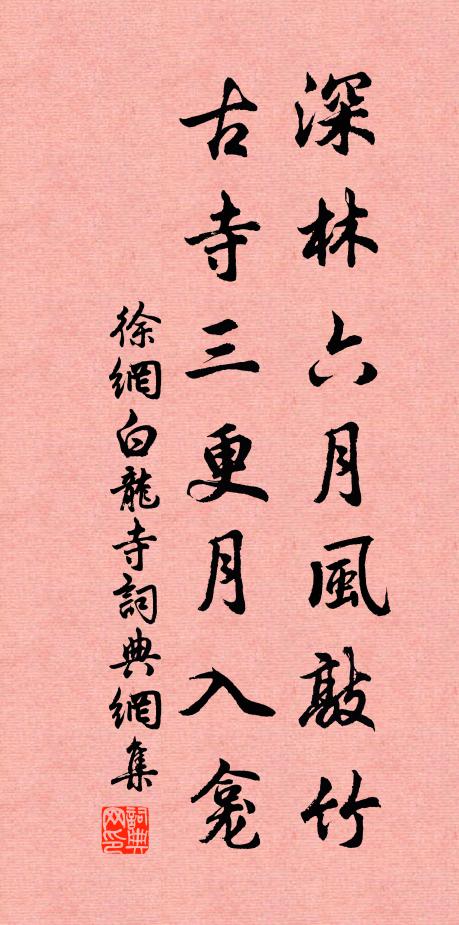 深林六月風敲竹
古寺三更月入龕
徐網白龍寺詞典網集
詞典網印